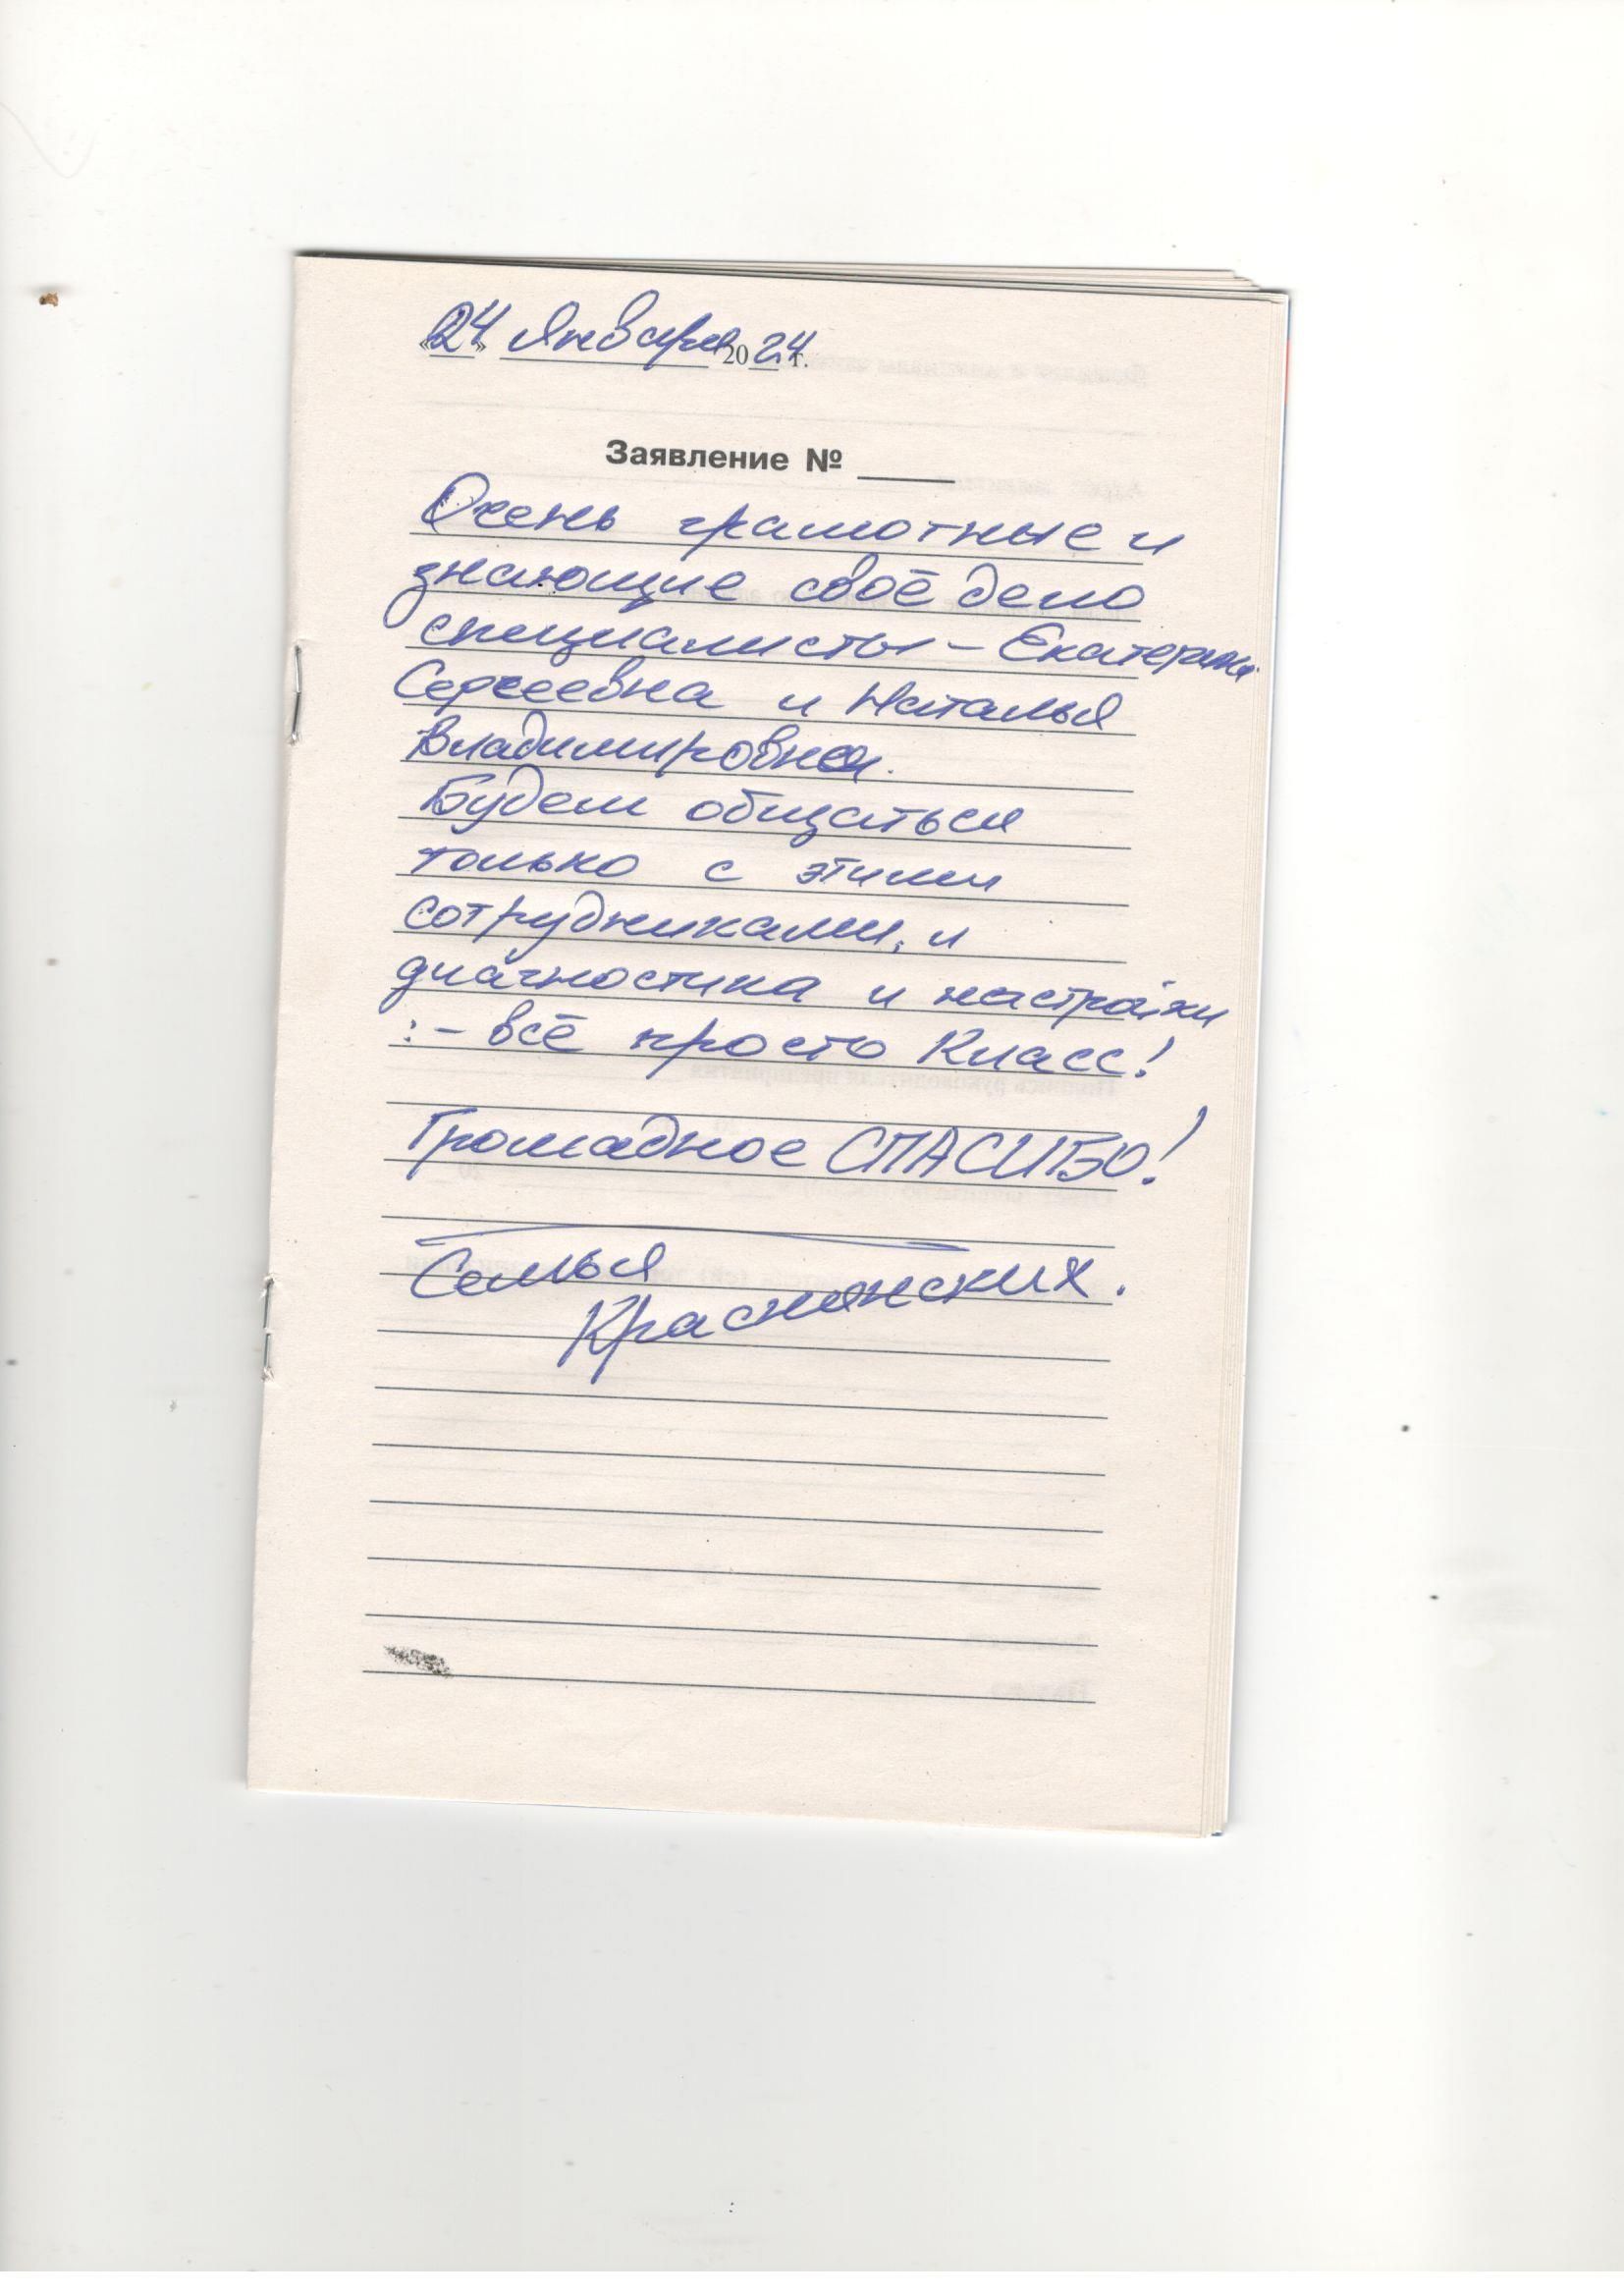 «24» Января 2024 г.
Заявление №
Очень грамотные и
знающие своё дело
специалисты – Екатерина
Сергеевна и Наталья
Владимировна.
Будем общаться
только с этими
сотрудниками, и
диагностика и настройки
: – всё просто Класс!
Громадное СПАСИБО!
Семья
Краснянских.